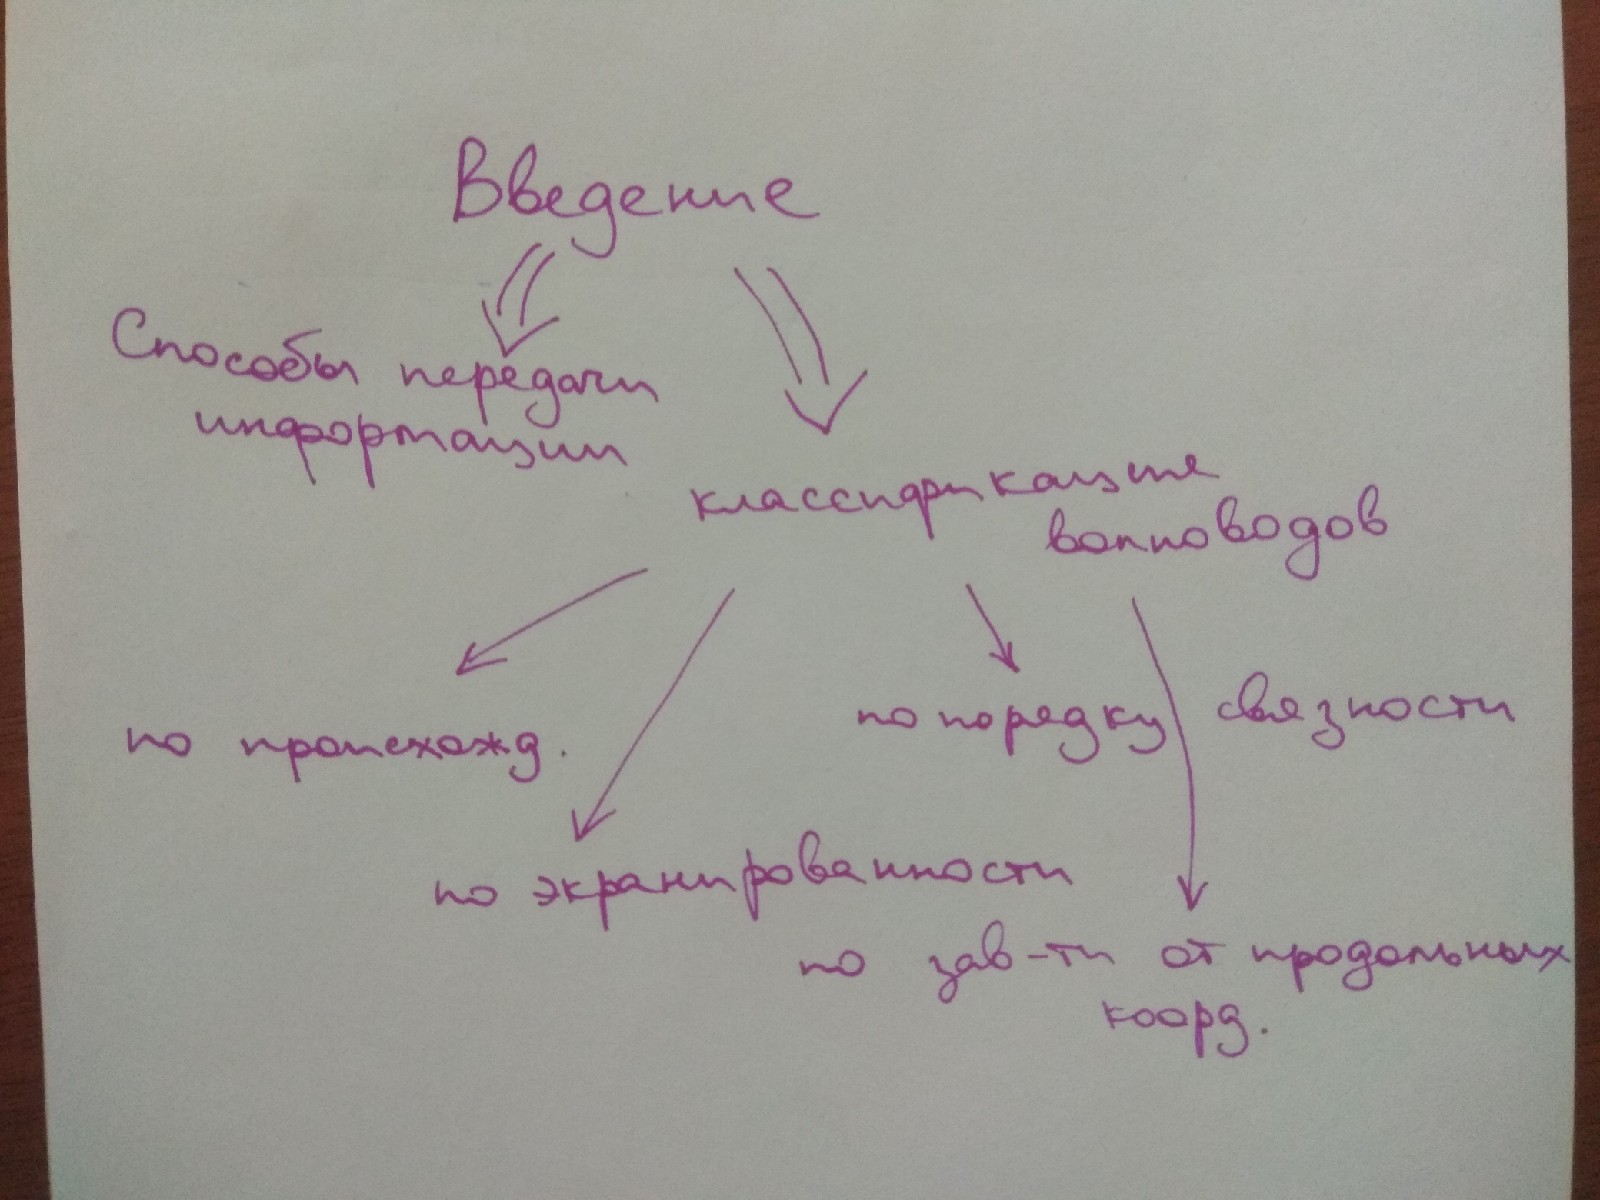 Введение
Способы передачи
информации
классификация
волноводов
по происхожд.
по порядку связности
по экранированности
по зав-ти от продольных
коорд.